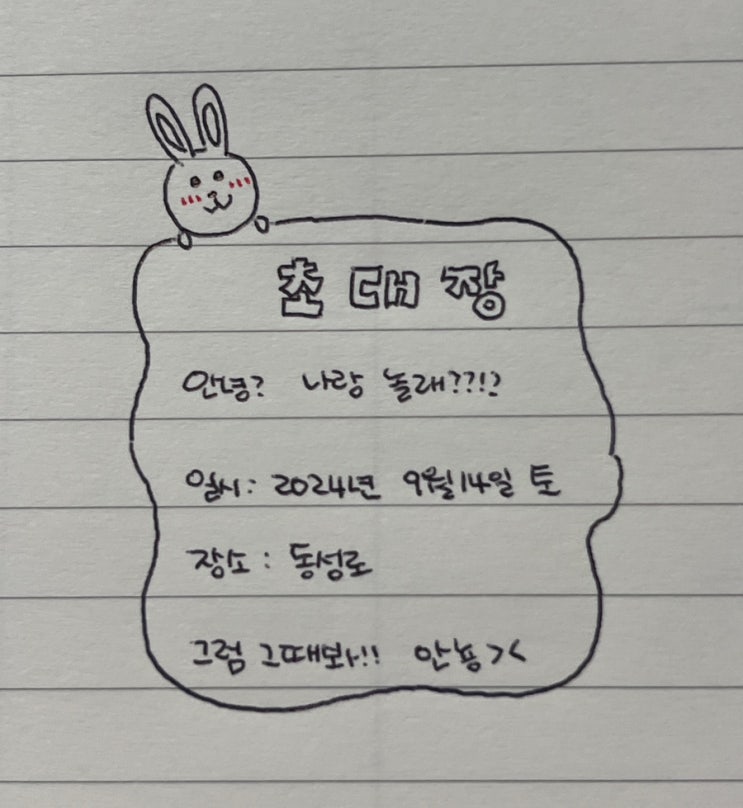 초대장
안녕? 나랑 놀래??!?
일시: 2024년 9월14일 토
장소: 동성로
그럼 그때봐!! 안뇽><